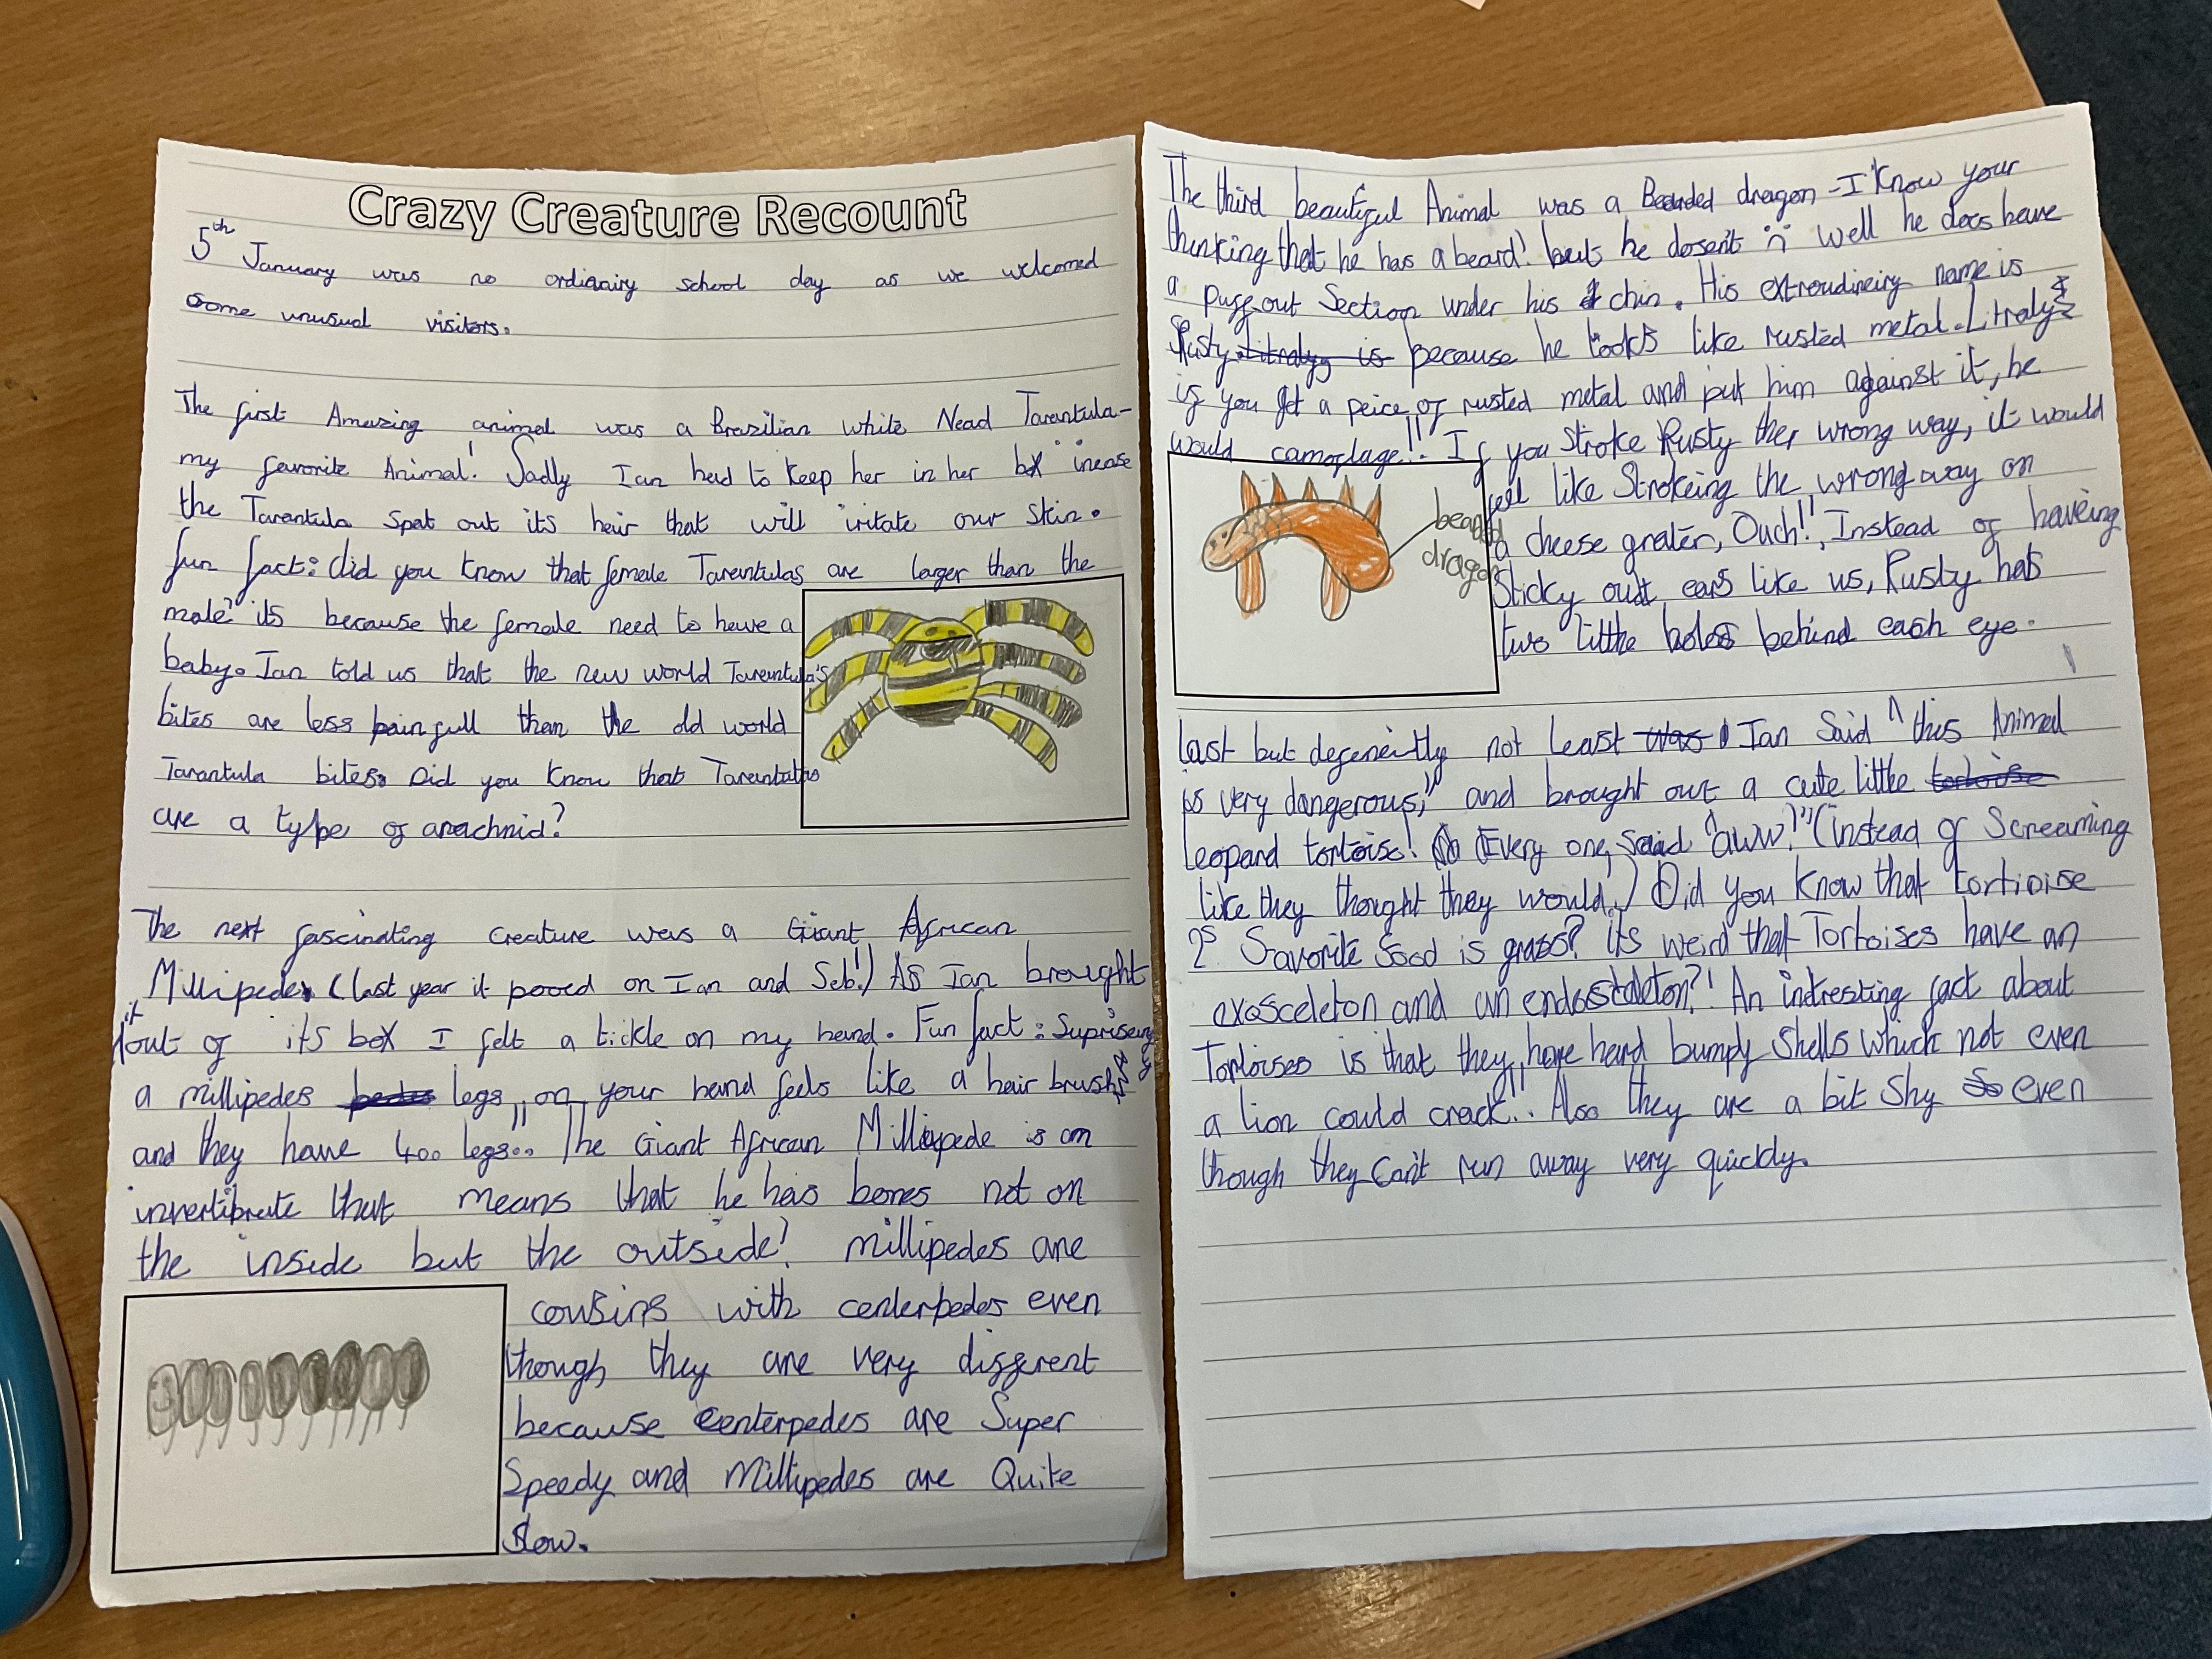 Crazy Creature Recount
5th January was no ordianiry school day as we welcomed
some unusual visitors.
The first Amazing animal was a Brazilian white Nead Tarentula-
my favorite Animal! Sadly Ian had to keep her in her box incase
the Tarantula spat out its hair that will iritate our skin.
fun fact: did you know that female Tarentulas are larger than the
male? its because the female need to have a
baby. Ian told us that the new world Tarentula's
bites are less painfull than the old world
Tarantula bites. Did you know that Tarentulas
are a type of arachnid?
The next fascinating creature was a Giant African
Millipede. (last year it pooed on Ian and Seb!) As Ian brought
it
out of its box I felt a tickle on my hand. Fun fact: Suprisengly
a millipedes legs on your hand feels like a hair brush
and they have 400 legs!! The Giant African Millipede is an
invertibrate that means that he has bones not on
the inside but the outside! millipedes are
cousins with centerpedes even
though they are very diffrent
because centerpedes are Super
Speedy and Millipedes are Quite
slow.
The third beautiful Animal was a Bearded dragon - I know your
thinking that he has a beard! but he dosen't :( well he does have
a puff-out Section under his chin. His extroudineiry name is
Rusty because he looks like rusted metal. Litraly
if you get a peice of rusted metal and put him against it, he
would camoflage!! If you Stroke Rusty the wrong way, it would
feel like Strokeing the wrong way on
a cheese grater, Ouch!! Instead of haveing
Sticky out ears like us, Rusty has
two little holes behind each eye.
bearded
dragon
last but defenently not least Ian Said "this Animal
is very dangerous," and brought out a cute little
leopard tortoise! Every one said "aww!" (instead of Screaming
like they thought they would.) Did you know that tortioise
's favorite food is grass? its weird that Tortoises have an
exosceleton and an endosceleton?! An intresting fact about
Tortoises is that they have hard bumpy shells which not even
a lion could crack!! Also they are a bit shy even
though they can't run away very quickly.